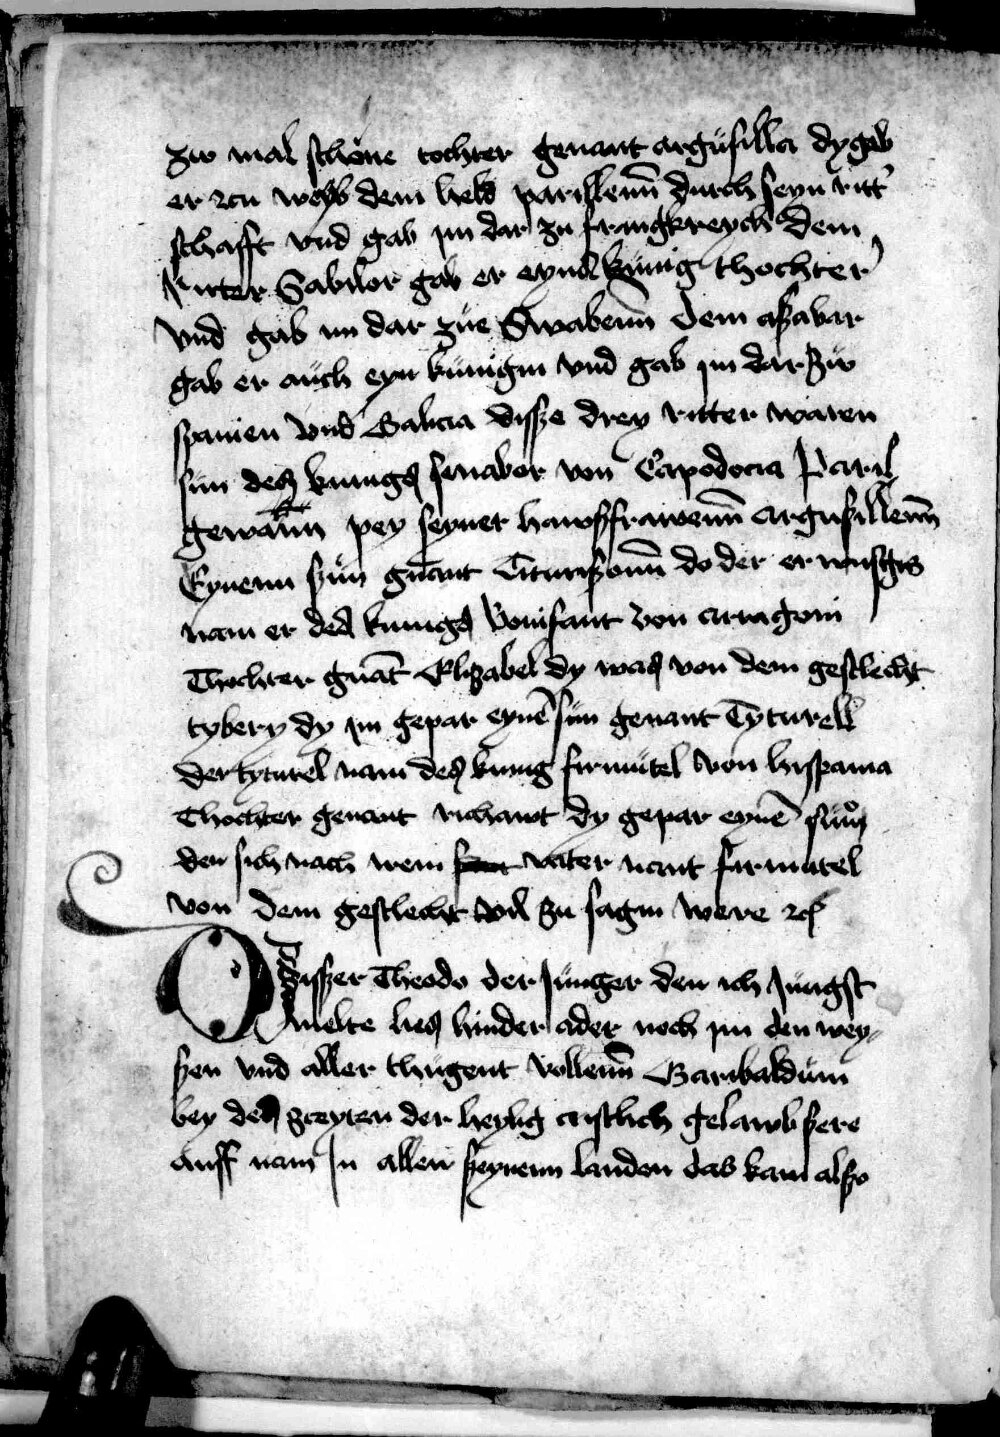 zw mal schöne tochter genant argusilla dy gab
er zcu weyb dem held parillenn durch seyn ritt'
schafft vnd gab im dar zu frangkreych dem
Ritter Sabilor gab er eynes künig thochter
vnd gab im dar zue Swabenn dem aszabar
gab er auch eyn künigin vnd gab im dar zw
spanien vnd Galicia disze drey ritter waren
sün des kunigs senabor von Capodocia Paril
gewann pey seyner hawsfrawenn argusillenn
Eynenn szun gnant Titurisonn do der er wuchs
nam er des kunigs bonifant von arragoni
Thochter gnāt Elizabel dy was von dem geslecht
tybery dy im gepar eynē sun genant Tyturell
der tyturel nam des kunig frimutel von hispania
Thochter genant richawt dy gepar eynē sun
den sich nach wem vater nant frimutel
von dem geslecht vil zu sagin were zc
Diszer Theodo der Junger den ich Jungst
melte lies hinder ader noch im den wey-
sen vnd aller thugent vollenn Garibaldum
bey des zceyten der heylig cristlich gelawb sere
auff nam Jn allen seynenn landen das kam also